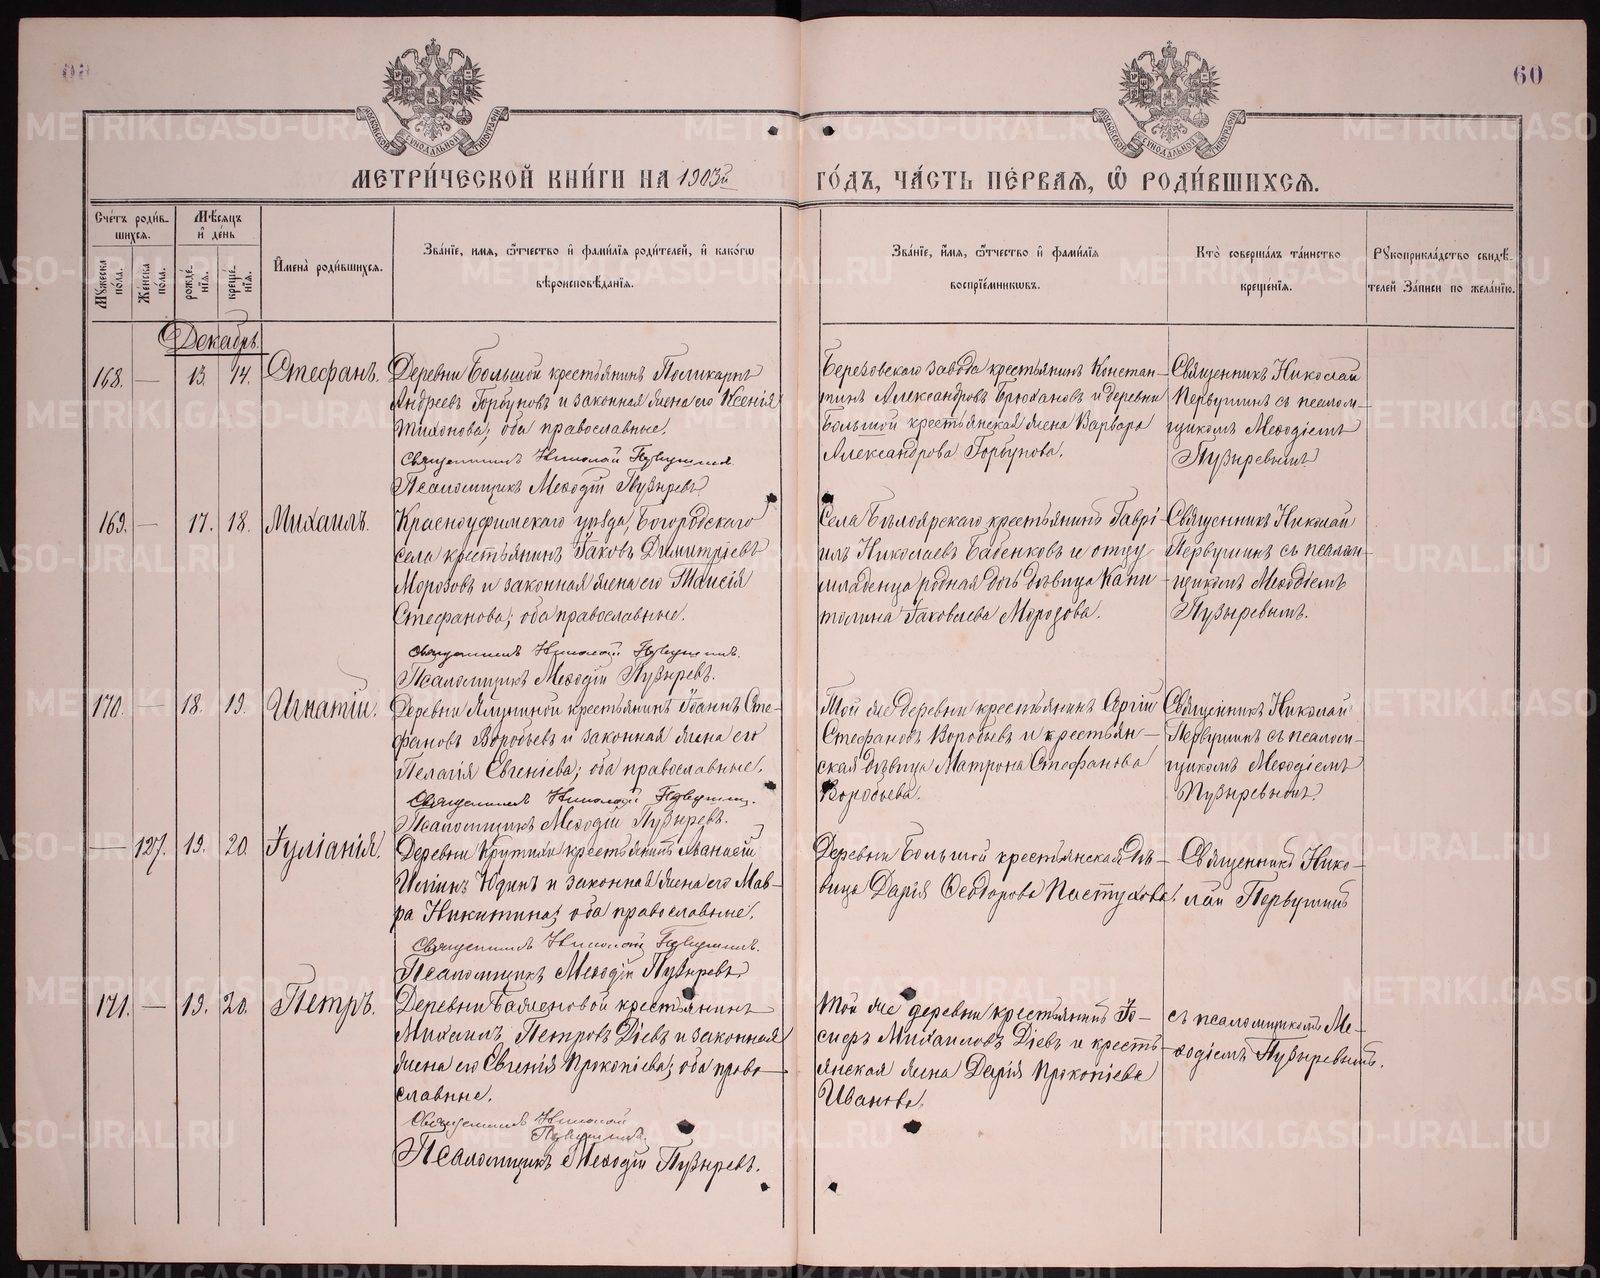 60
МЕТРИ́ЧЕСКОЙ КНИ́ГИ НА 1903й ГО́ДЪ, ЧА́СТЬ ПЕ́РВАѦ, Ѽ РОДИ́ВШИХСѦ.
Сче́тъ роди́вшихся.
Мѣ́сяцъ и де́нь
Мꙋжеска по́ла.
Же́нска по́ла.
рожде́нїя.
креще́нїя.
Имена̀ роди́вшихся.
Зва́нїе, имя, ѻ҆́тчество и фами́лїя роди́телей, и како́гѡ вѣроисповѣ́данїя.
Зва́нїе, и́мя, ѻ҆́тчество и фами́лїя воспрїе́мникѡвъ.
Кто̀ соверша́лъ та́инство креще́нїя.
Рꙋкоприкла́дство свидѣ́телей За́писи по жела́нїю.
Декабрь.
168. — 13. 14. Стефанъ.
Деревни Большой крестьянинъ Поликарпъ
Андреевъ Горбуновъ и законная жена его Ксенія
Тихонова; оба православные.
Священникъ Николай Первушинъ.
Псаломщикъ Меѳодій Пузыревъ
Березовскаго завода крестьянинъ Констан-
тинъ Александровъ Брюхановъ и деревни
Большой крестьянская жена Варвара
Александрова Горбунова.
Священникъ Николай
Первушинъ съ псалом-
щикомъ Меѳодіемъ
Пузыревымъ.
169. — 17. 18. Михаилъ.
Красноуфимскаго уѣзда, Богородскаго
села крестьянинъ Іаковъ Димитріевъ
Морозовъ и законная жена его Таисія
Стефанова; оба православные.
Священникъ Николай Первушинъ.
Псаломщикъ Меѳодій Пузыревъ.
Села Бѣлоярскаго крестьянинъ Гаврі-
илъ Николаевъ Бабенковъ и отцу
младенца родная дочь дѣвица Капи-
толина Іаковлева Морозова.
Священникъ Николай
Первушинъ съ псалом-
щикомъ Меѳодіемъ
Пузыревымъ.
170. — 18. 19. Игнатій.
Деревни Ялуниной крестьянинъ Іоаннъ Сте-
фановъ Воробьевъ и законная жена его
Пелагія Евгеніева; оба православные.
Священникъ Николай Первушинъ.
Псаломщикъ Меѳодій Пузыревъ.
Той же деревни крестьянинъ Сергій
Стефановъ Воробьевъ и крестьян-
ская дѣвица Матрона Стефанова
Воробьева.
Священникъ Николай
Первушинъ съ псалом-
щикомъ Меѳодіемъ
Пузыревымъ.
— 127. 19. 20. Іуліанія.
Деревни Крутихи крестьянинъ Аѳанасій
Илiинъ Юдинъ и законная жена его Мав-
ра Никитина; оба православные.
Священникъ Николай Первушинъ.
Псаломщикъ Меѳодій Пузыревъ
Деревни Большой крестьянская дѣ-
вица Дарія Ѳеодорова Пастухова.
Священникъ Нико-
лай Первушинъ
171. — 19. 20. Петръ.
Деревни Баженовой крестьянинъ
Михаилъ Петровъ Діевъ и законная
жена его Евгенія Прокопіева; оба право-
славные.
Священникъ Николай
Первушинъ.
Псаломщикъ Меѳодій Пузыревъ.
Той же деревни крестьянинъ Іо-
сифъ Михаиловъ Діевъ и кресть-
янская жена Дарія Прокопіева
Иванова.
съ псаломщикомъ Ме-
ѳодіемъ Пузыревымъ.
METRIKI.GASO-URAL.RU